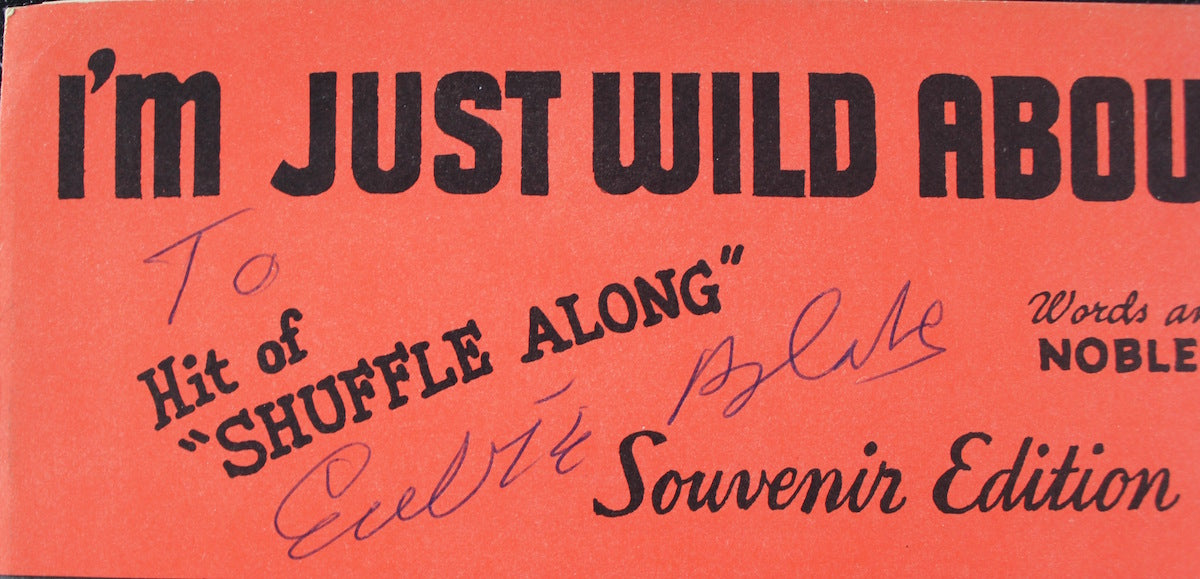 I'M JUST WILD ABOU
To
Hit of
"SHUFFLE ALONG"
Words an
NOBLE
Eubie Blake
Souvenir Edition